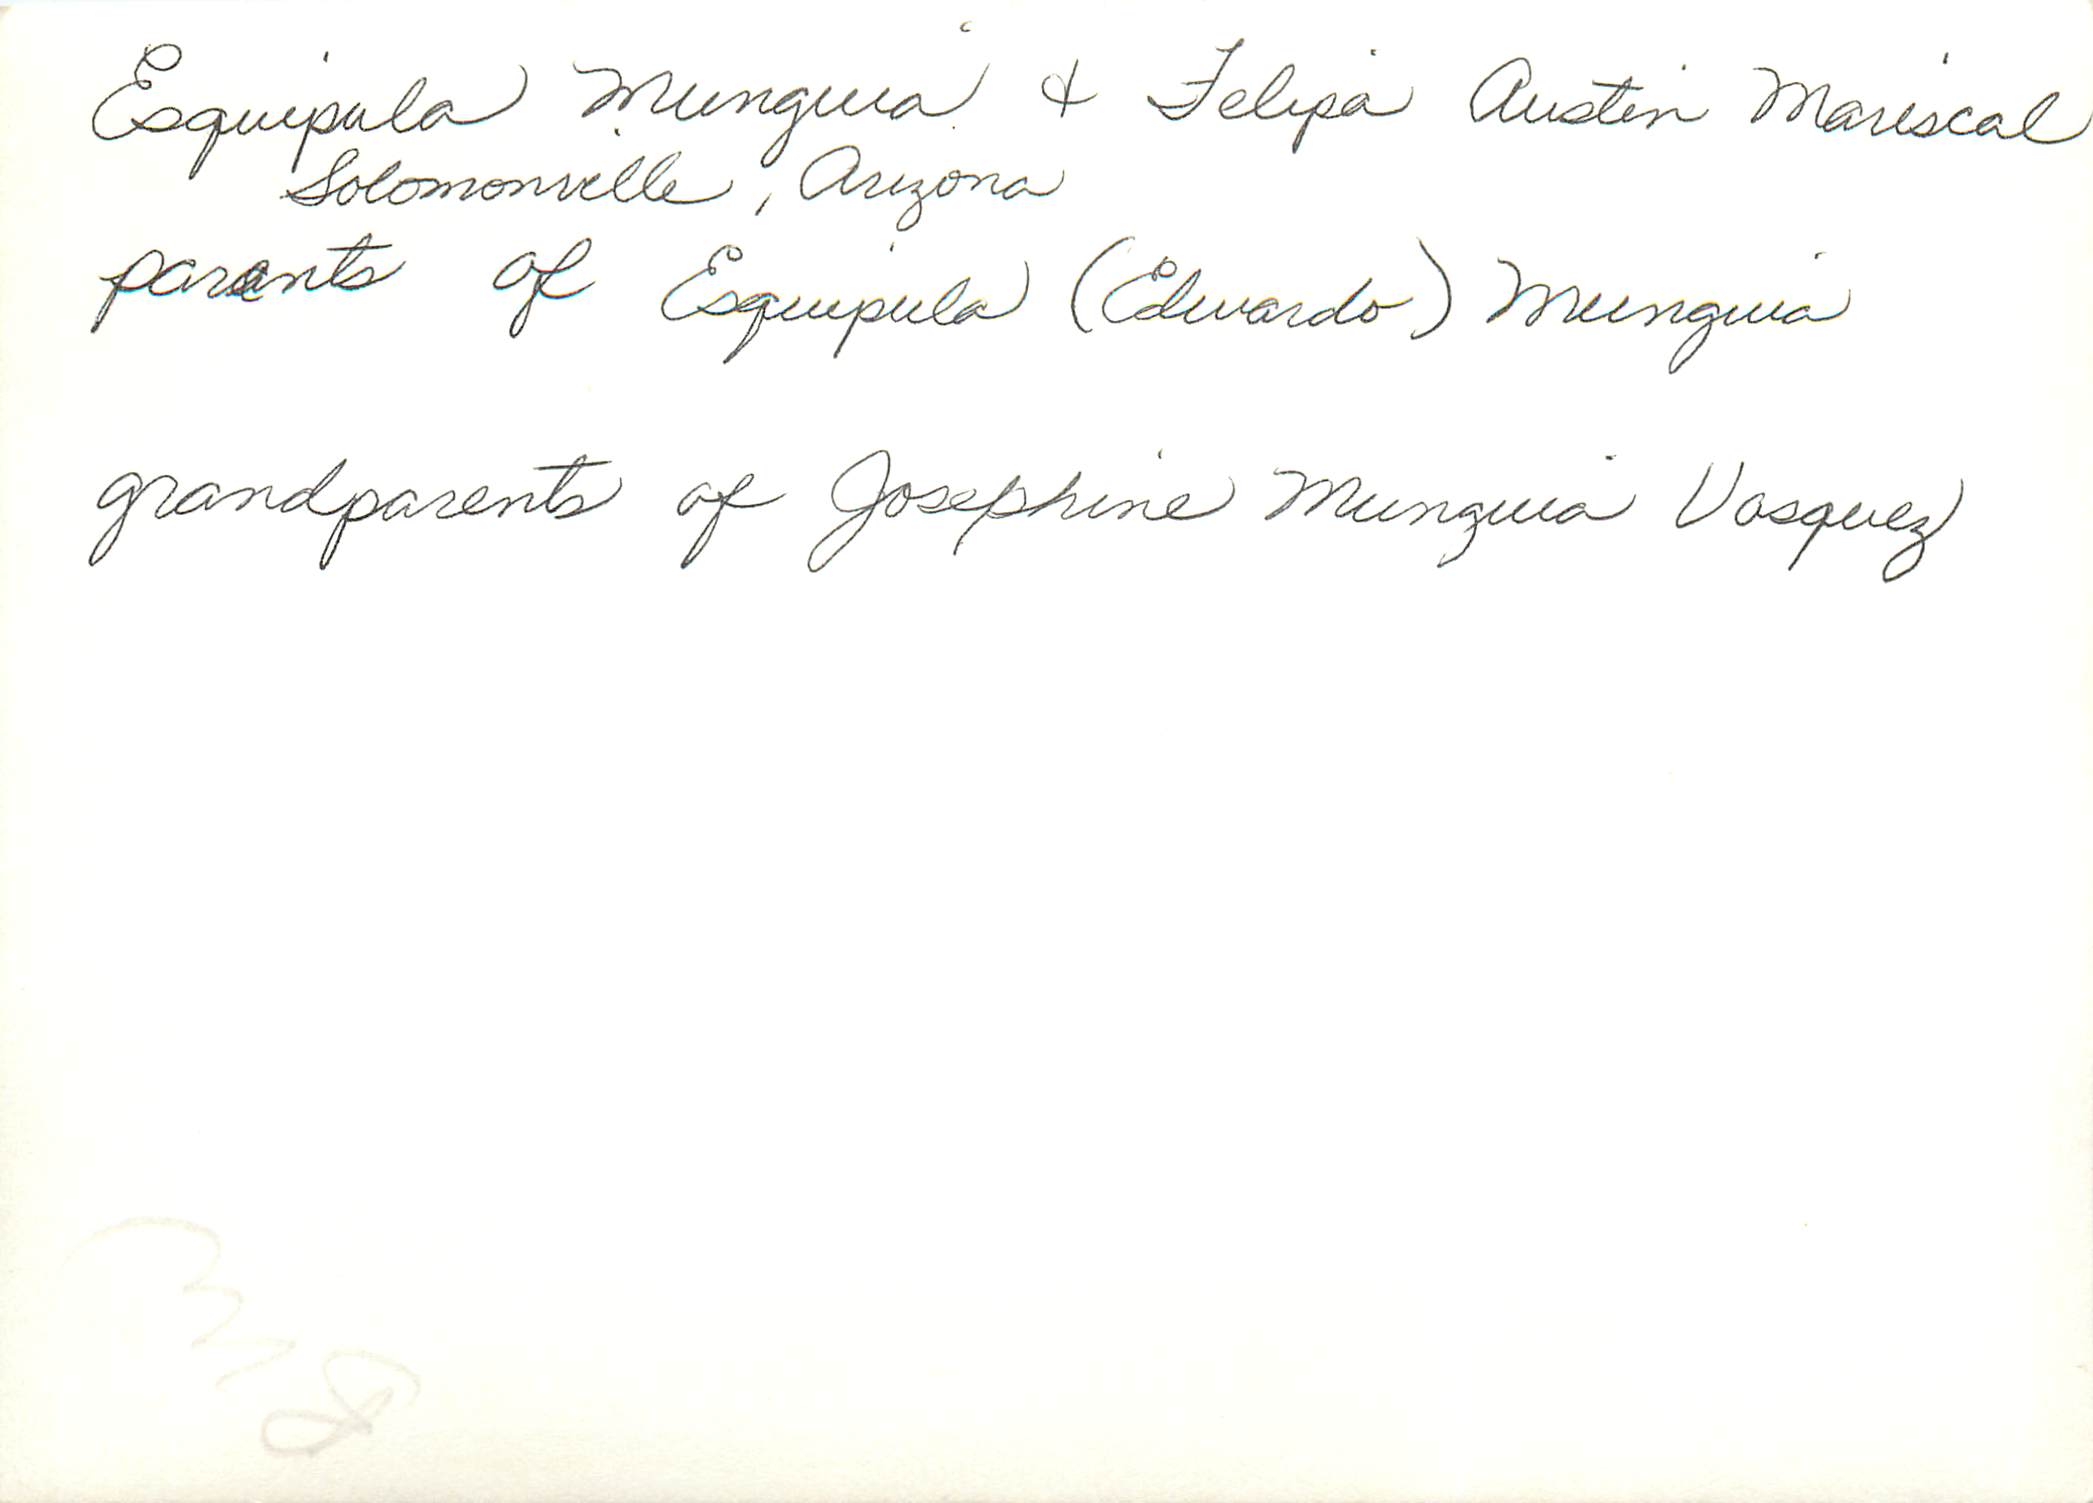 Esquipula Munguia & Felipa Austin Mariscal
Solomonville, Arizona
parents of Esquipula (Edwardo) Munguia
grandparents of Josephine Munguia Vasquez